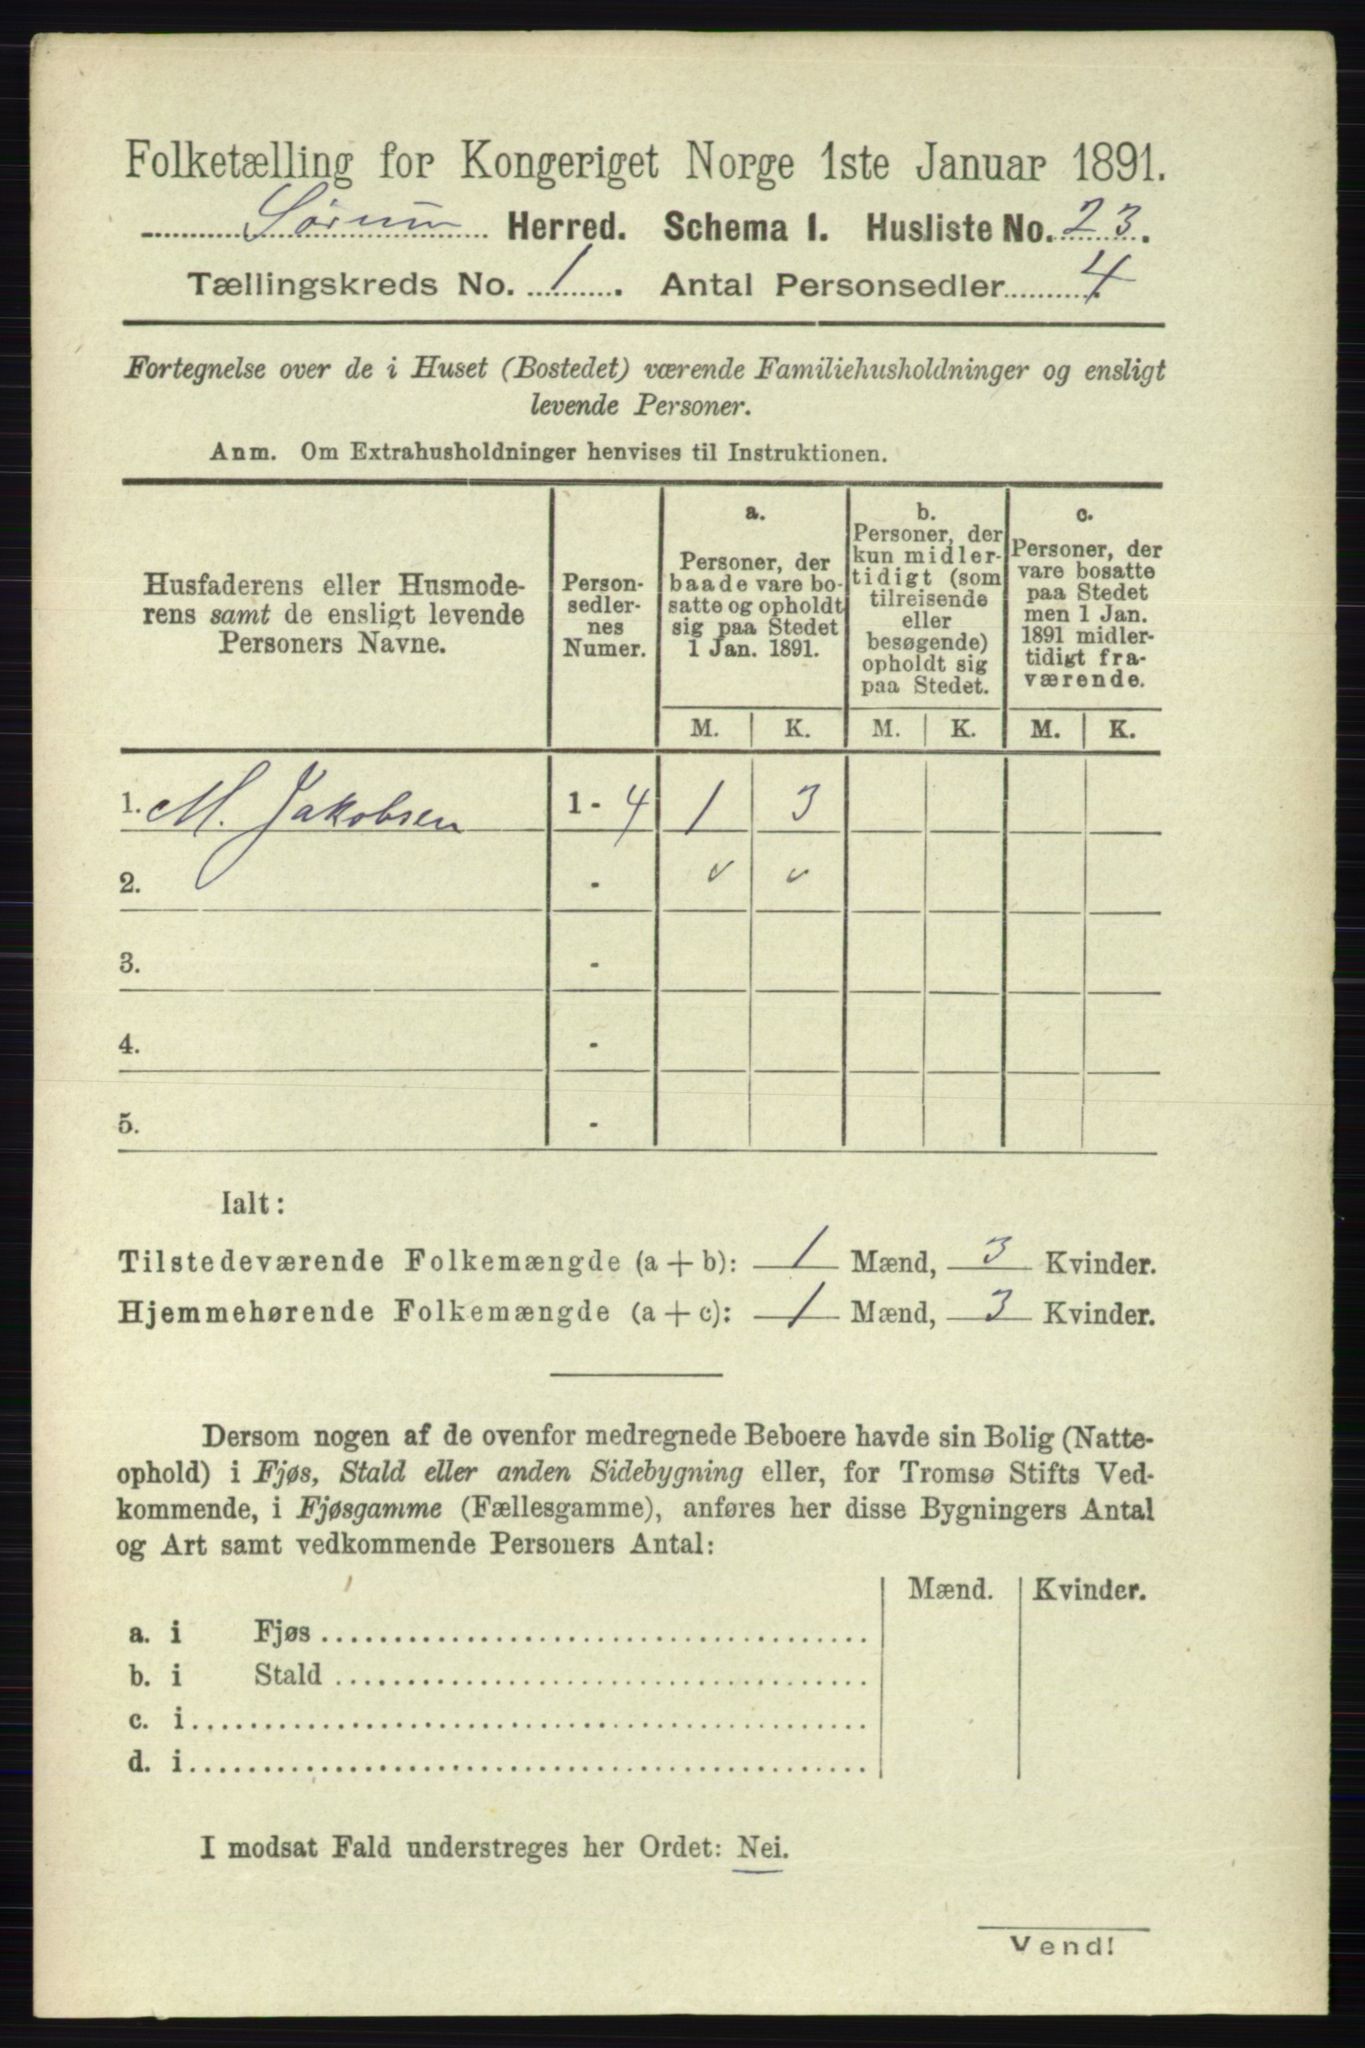 Folketælling for Kongeriget Norge 1ste Januar 1891.
Sørum Herred. Schema I. Husliste No. 23.
Tællingskreds No. 1. Antal Personsedler 4.
Fortegnelse over de i Huset (Bostedet) værende Familiehusholdninger og ensligt
levende Personer.
Anm. Om Extrahusholdninger henvises til Instruktionen.
Husfaderens eller Husmode-
rens samt de ensligt levende
Personers Navne.
Person-
sedler-
nes
Numer.
a.
Personer, der
baade vare bo-
satte og opholdt
sig paa Stedet
1 Jan. 1891.
b.
Personer, der
kun midler-
tidigt (som
tilreisende
eller
besøgende)
opholdt sig
paa Stedet.
c.
Personer, der
vare bosatte
paa Stedet
men 1 Jan.
1891 midler-
tidigt fra-
værende.
M. K. M. K. M. K.
1. M. Jakobsen 1 - 4 1 3
2. - v v
3. -
4. -
5. -
Ialt:
Tilstedeværende Folkemængde (a + b): 1 Mænd, 3 Kvinder.
Hjemmehørende Folkemængde (a + c): 1 Mænd, 3 Kvinder.
Dersom nogen af de ovenfor medregnede Beboere havde sin Bolig (Natte-
ophold) i Fjøs, Stald eller anden Sidebygning eller, for Tromsø Stifts Ved-
kommende, i Fjøsgamme (Fællesgamme), anføres her disse Bygningers Antal
og Art samt vedkommende Personers Antal:
Mænd. Kvinder.
a. i Fjøs
b. i Stald
c. i
d. i
I modsat Fald understreges her Ordet: Nei.
Vend!